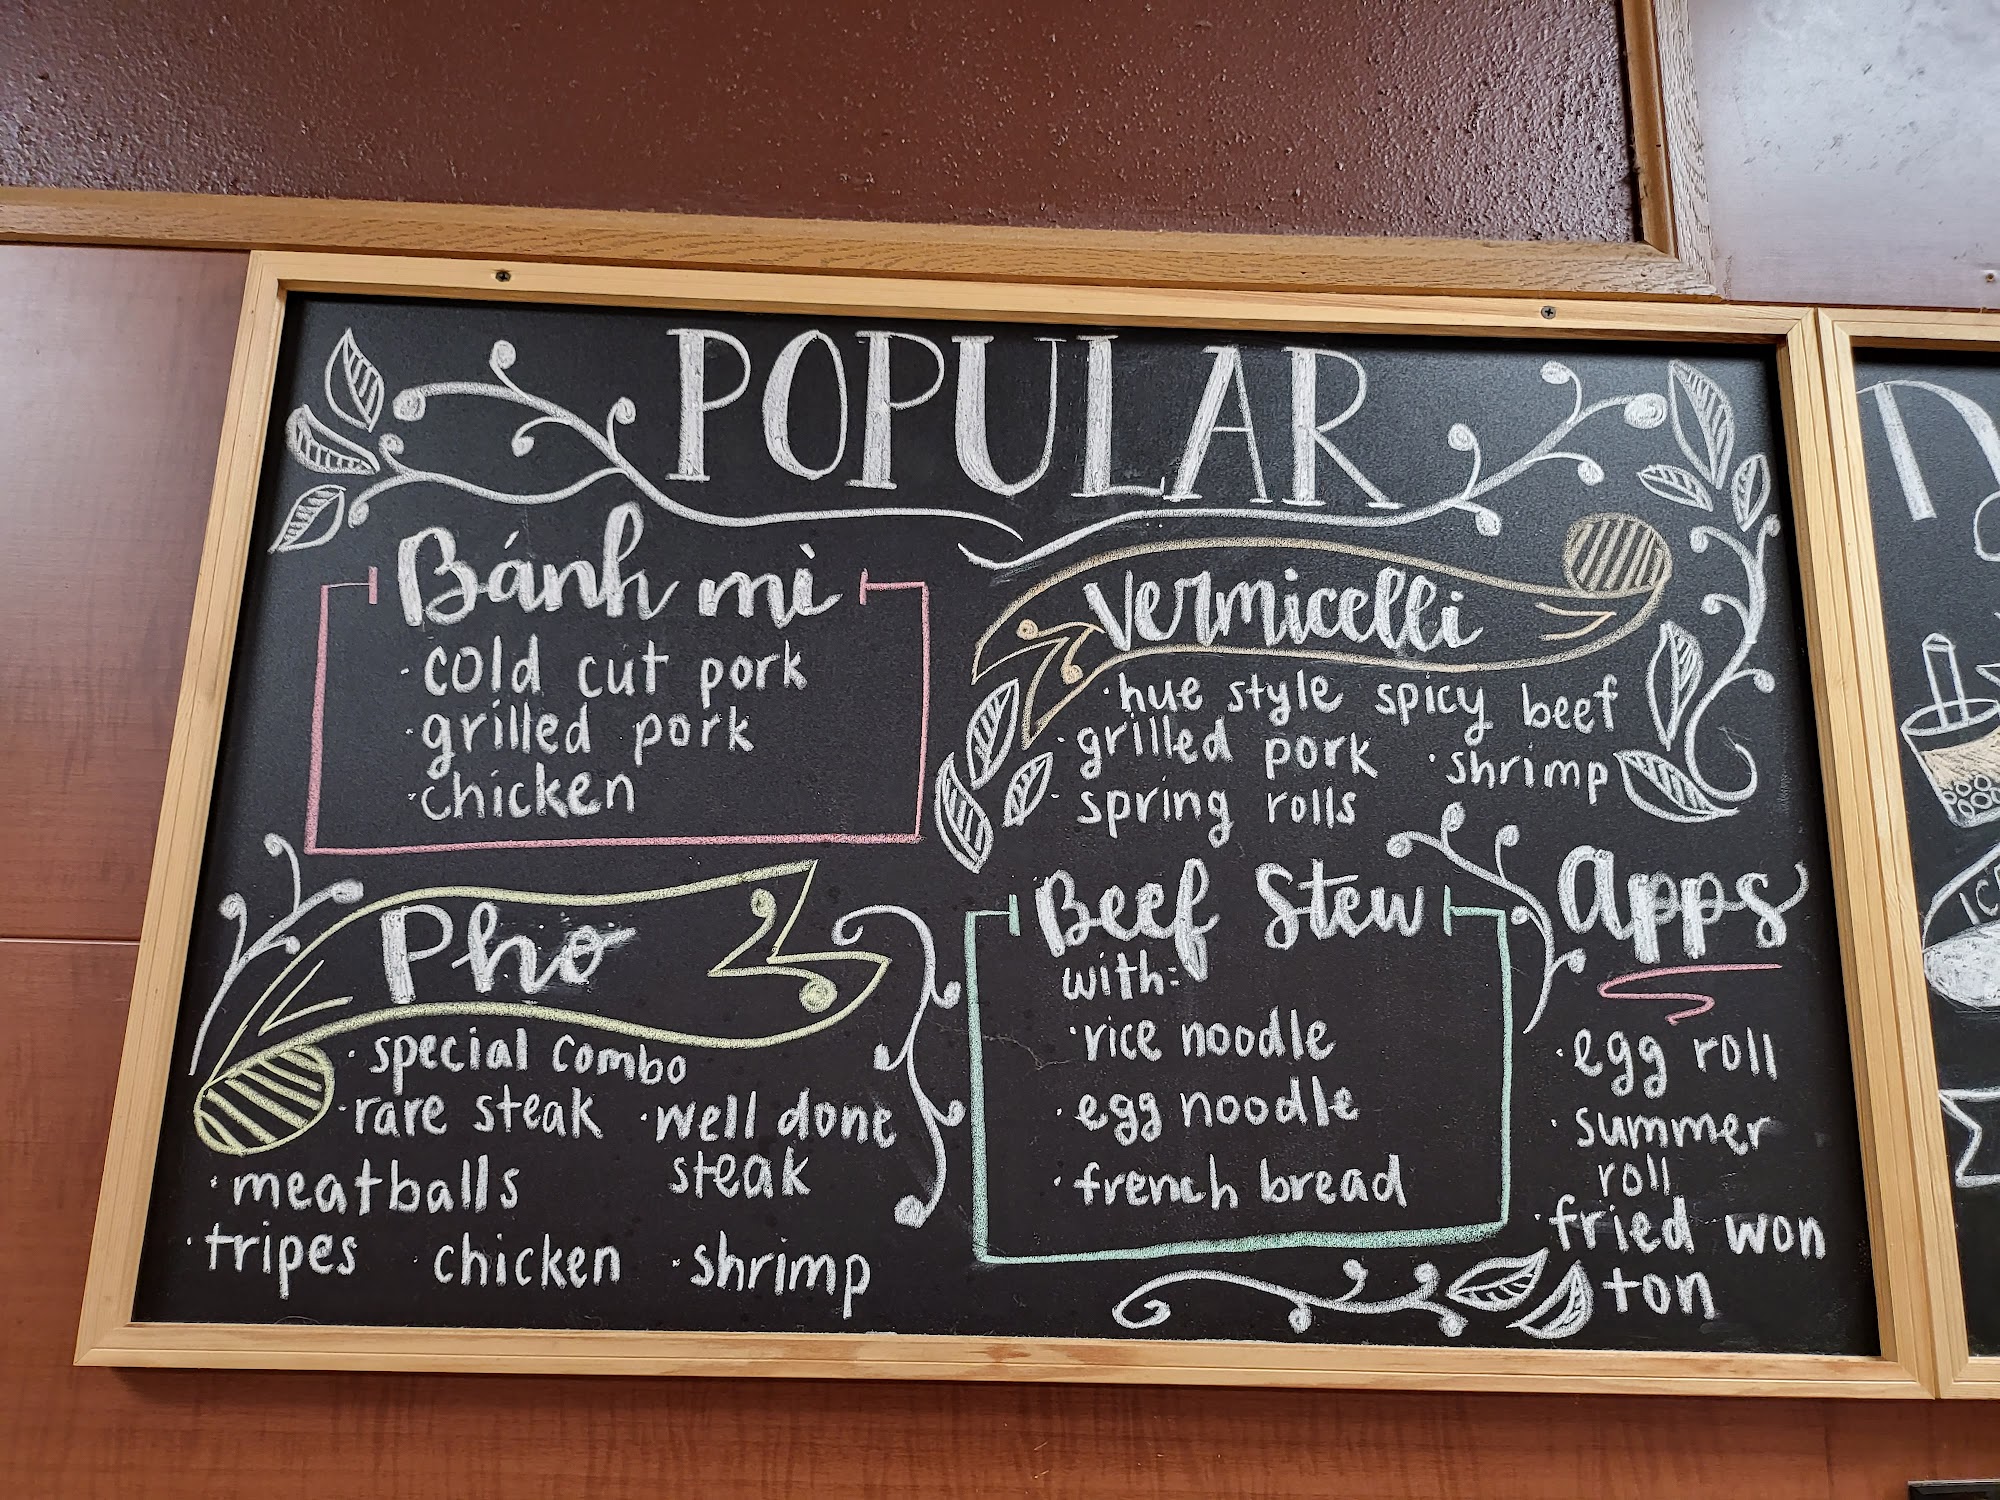 POPULAR
Bánh mì
· cold cut pork
· grilled pork
· chicken
Vermicelli
· hue style spicy beef
· grilled pork · shrimp
· spring rolls
Pho
· special combo
· rare steak · well done
steak
· meatballs
· tripes · chicken · shrimp
Beef Stew
with:
· rice noodle
· egg noodle
· french bread
apps
· egg roll
· summer
roll
· fried won
ton